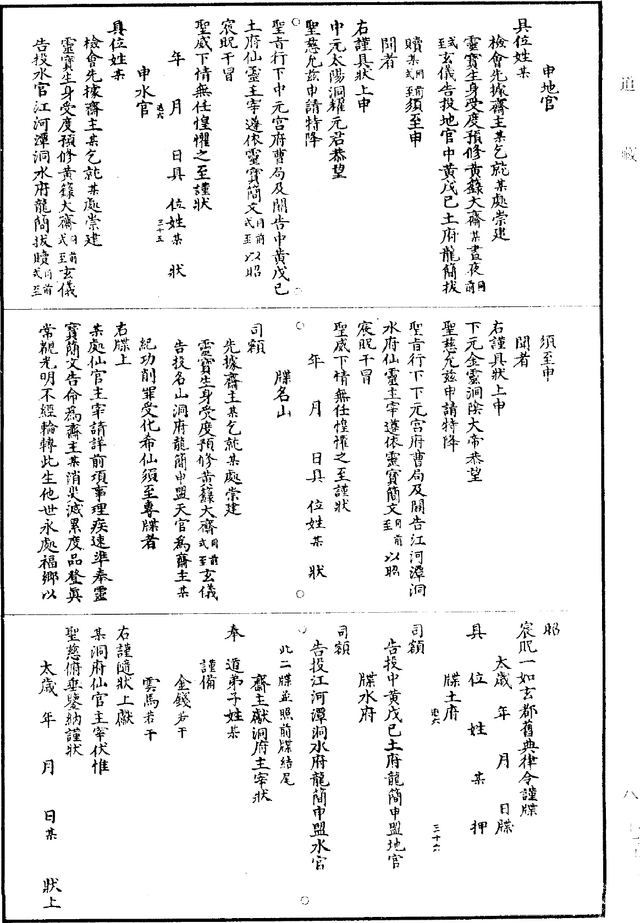 道藏
申地官
具位姓某
檢會先據齋主某乞就某處崇建
靈寶生身受度預修黃籙大齋某晝夜同前
式至玄儀告投地官中黃戊己土府龍簡拔
贖某同前式至須至申
聞者
右謹具狀上申
中元太陽洞耀元君恭望
聖慈允茲申請特降
聖旨行下中元宮府曹局及關告中黃戊己
土府仙靈主宰遵依靈寶簡文同前式至以昭
宸眂干冒
聖威下情無任惶懼之至謹狀
年 月 日具位姓某 狀
申水官
三十五
具位姓某
檢會先據齋主某乞就某處崇建
靈寶生身受度預修黃籙大齋同前式至玄儀
告投水官江河潭洞水府龍簡拔贖同前式至
須至申
聞者
右謹具狀上申
下元金靈洞陰大帝恭望
聖慈允茲申請特降
聖旨行下下元宮府曹局及關告江河潭洞
水府仙靈主宰遵依靈寶簡文同前式至以昭
宸眂干冒
聖威下情無任惶懼之至謹狀
年 月 日具位姓某 狀
牒名山
司額
先據齋主某乞就某處崇建
靈寶生身受度預修黃籙大齋同前式至玄儀
告投名山洞府龍簡申盟天官為齋主某
紀功削罪受化希仙須至專牒者
右牒上
某處仙官主宰請詳前項事理疾速準奉靈
寶簡文告命為齋主某消災滅累度品登真
常覩光明不經輪轉此生他世永處福鄉以
昭
宸眂一如玄都舊典律令謹牒
太歲 年 月 日牒
具位姓某押
牒土府
三十六
司額
告投中黃戊己土府龍簡申盟地官
牒水府
司額
告投江河潭洞水府龍簡申盟水官
此二牒並照前牒結尾
齋主獻洞府主宰狀
奉道弟子姓某
謹備
金錢若干
雲馬若干
右謹隨狀上獻
某洞府仙官主宰伏惟
聖慈俯垂鑒納謹狀
太歲 年 月 日某 狀上